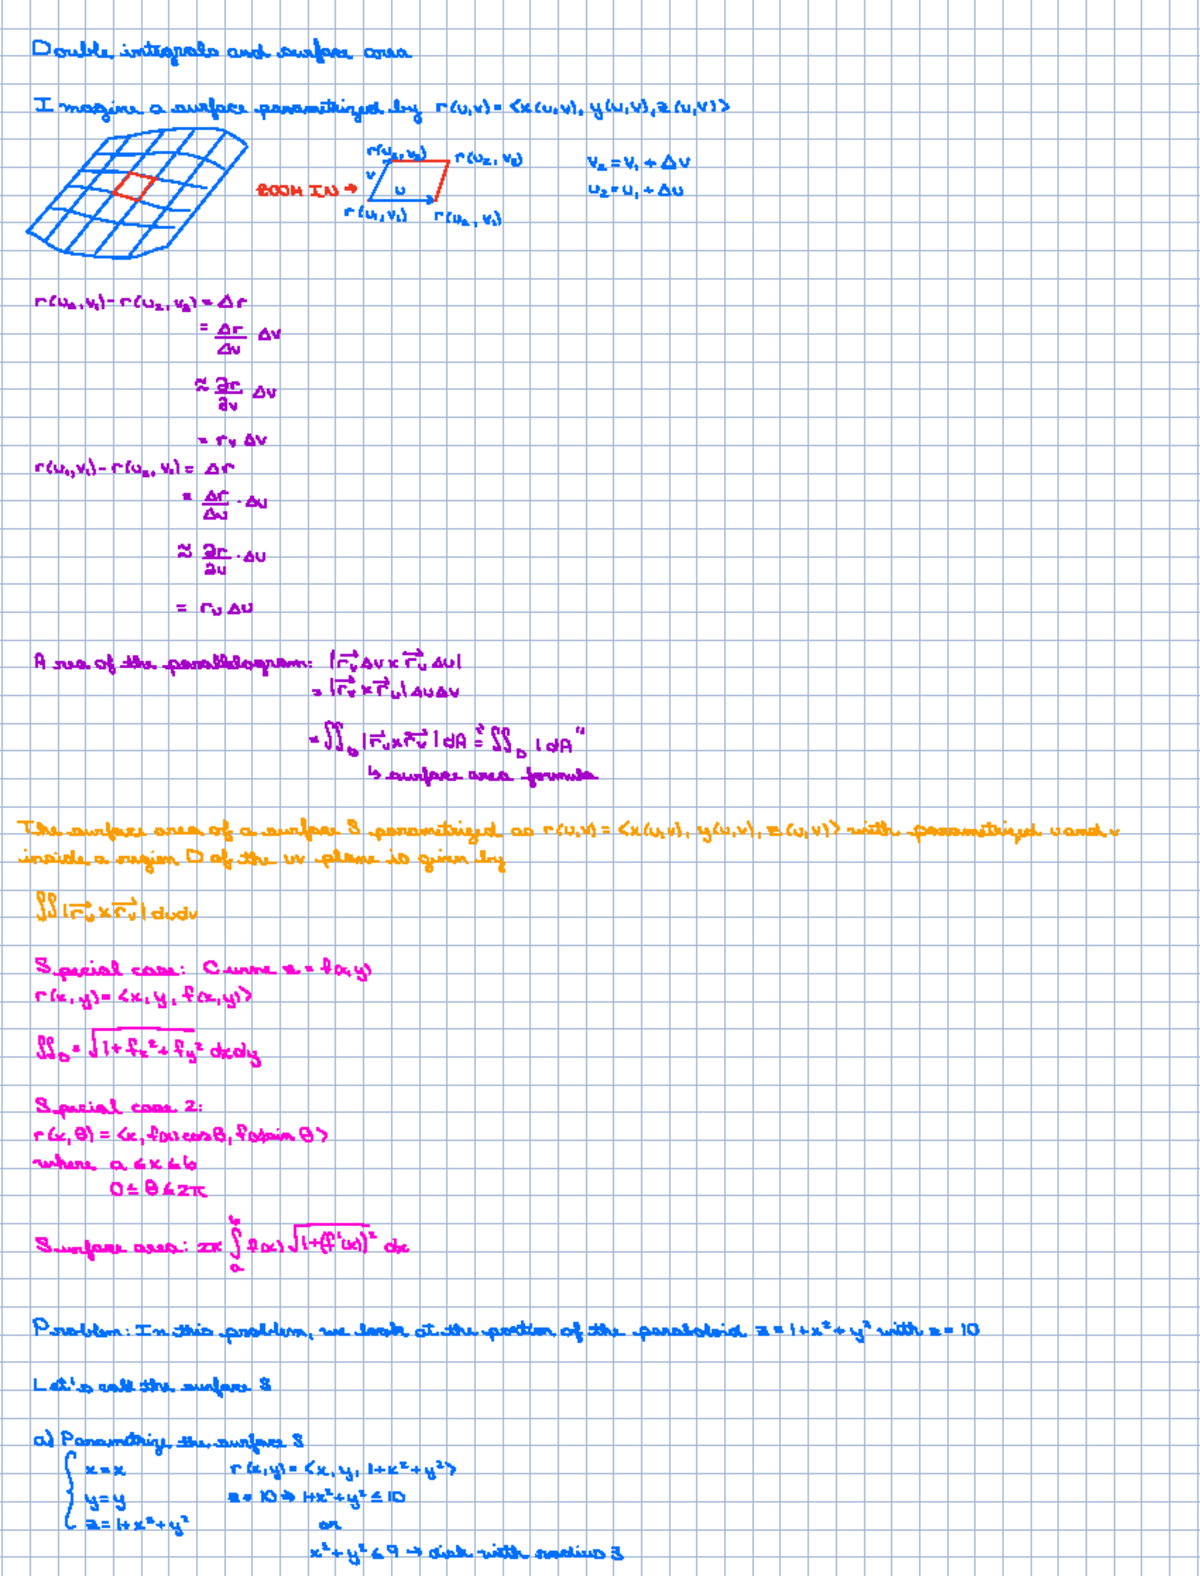 Double integrals and surface area
Imagine a surface parametrized by r(u,v) = <x(u,v), y(u,v), z(u,v)>
r(u₁,v₂) r(u₂,v₂)
v₂ = v₁ + Δv
ZOOM IN → v u
u₂ = u₁ + Δu
r(u₁,v₁) r(u₂,v₁)
r(u₂,v₁) - r(u₂,v₂) = Δr
= Δr/Δv Δv
≈ ∂r/∂v Δv
= rᵥ Δv
r(u₁,v₁) - r(u₂,v₁) = Δr
= Δr/Δu · Δu
≈ ∂r/∂u · Δu
= rᵤ Δu
Area of the parallelogram: |r⃗ᵥ Δv × r⃗ᵤ Δu|
= |r⃗ᵥ × r⃗ᵤ| Δu Δv
= ∬_D |r⃗ᵤ × r⃗ᵥ| dA = "∬_D 1 dA"
↳ surface area formula
The surface area of a surface S parametrized as r(u,v) = <x(u,v), y(u,v), z(u,v)> with parametrized u and v
inside a region D of the uv plane is given by
∬ |r⃗ᵤ × r⃗ᵥ| du dv
Special case: Curve z = f(x,y)
r(x,y) = <x, y, f(x,y)>
∬_D = √(1 + fₓ² + f_y²) dx dy
Special case 2:
r(x,θ) = <x, f(x) cos θ, f(x) sin θ>
where a ≤ x ≤ b
0 ≤ θ ≤ 2π
Surface area: 2π ∫ₐᵇ f(x) √(1 + (f'(x))²) dx
Problem: In this problem, we look at the portion of the paraboloid z = 1 + x² + y² with z = 10
Let's call the surface S
a) Parametrize the surface S
x = x r(x,y) = <x, y, 1 + x² + y²>
y = y z = 10 → 1 + x² + y² ≤ 10
z = 1 + x² + y² or
x² + y² ≤ 9 → disk with radius 3